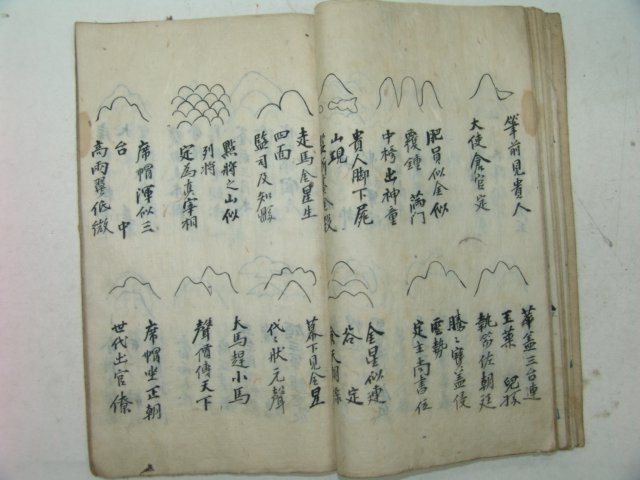 筆前見貴人
大使倉官定
肥員似金似
覆鍾 滿門
中榜出神童
貴人脚下屍
山現
走馬金星生
四面
監司及知縣
點將之山似
列將
定為真宰相
席帽渾似三
台 中
高兩聖低微
華盖三台連
王葉
執笏佐朝廷
勝〻寶盖侵
雲勢
定主尚書位
金星似連
定
幕下見金星
代〻狀元聲
大馬趕小馬
聲價傳天下
席帽坐正朝
世代出官僚